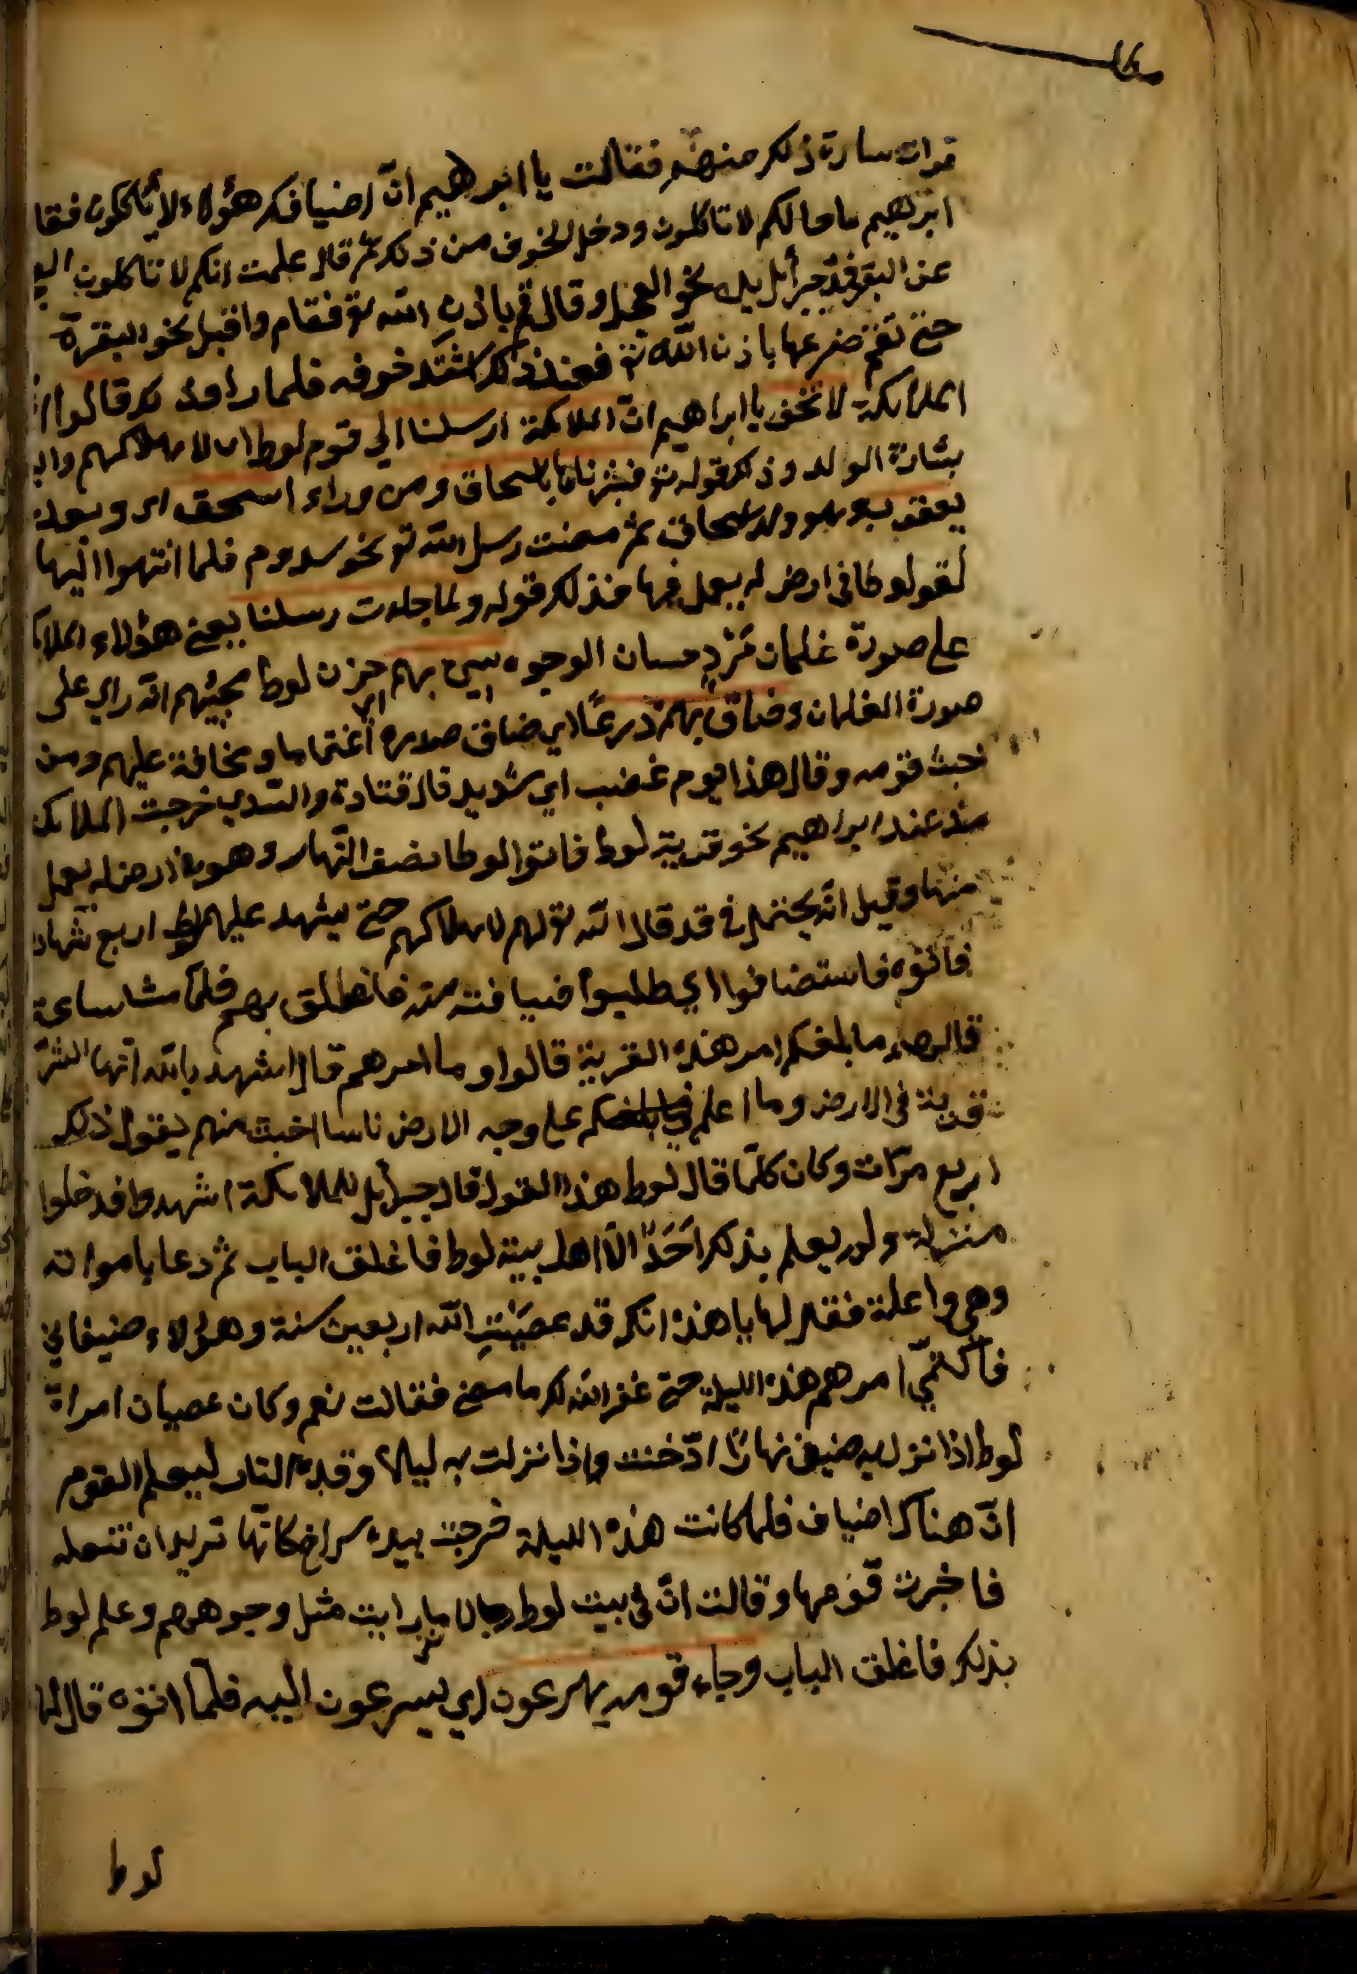 فرات سارة ذلك منهم فقالت يا ابرهيم انّ اضيافك هؤلاء لا يأكلون فقا
ابرهيم ما حالكم لا تاكلون ودخل الخوف من ذلك ثم قال علمت انكم لا تاكلون
جبرأيل بيده نحو العجل وقال قم باذن الله تع فقام واقبل نحو البقرة
حتى ضرعها باذن الله تع فعند ذلك اشتد خوفه فلما راوا ذلك قالوا
الملائكة لا تخف يا ابراهيم انّ الملائكة ارسلنا الي قوم لوط اى لاهلاكهم
بشارة الولد وذلك قوله تع فبشرناها باسحاق ومن وراء اسحق اى وبعد
يعقوب وهو ولد اسحاق ثم مضت رسل الله تع نحو سدوم فلما انتهوا اليها
لقوا لوطا في ارض له يعمل فيها فذلك قوله ولما جاءت رسلنا يعنى هؤلاء الملا
على صورة غلمان مُرْدٍ حسان الوجوه سيئ بهم اى حزن لوط بمجيئهم انّه راى على
صورة الغلمان وضاق بهم ذرعًا اي ضاق صدره اغتماما ومخافة عليهم ومن
خبث قومه وقال هذا يوم عصيب اي شديد قال قتادة والسّدي خرجت الملائكة
من عند ابراهيم نحو قرية لوط فاتوا لوطا نصف النّهار وهو في ارض له يعمل
منها وقيل انه يحتمل في قد قال الله تع لهم لاهلاكهم حتى يشهد عليهم لوط اربع شهاد
فاتوه فاستضافوا اي طلبوا ضيافته منه فانطلق بهم فلمّا مشا ساعة
قال لهم ما بلغكم امر هذه القرية قالوا وما امرهم قال اشهد بالله انّها لشرّ
قرية في الارض وما اعلم على وجه الارض ناسا اخبث منهم يقول ذلك
اربع مرّات وكان كلّما قال لوط هذا القول قال جبرأيل للملائكة اشهدوا فدخلوا
منزله ولم يعلم بذلك اَحَدٌ الّا اهل بيت لوط فاغلق الباب ثم دعا بامراته
وهي واعلة فقال لها يا هذه انك قد عصيْتِ الله اربعين سنة وهؤلاء ضيفاني
فاكتمي امرهم هذه الليلة حتى غفر الله لك ما مضى فقالت نعم وكان عصيان امراة
لوط اذا نزل به ضيف نهارًا ادّخنت واذا نزلت به ليلا وقدت النار ليعلم القوم
انّ هناك اضياف فلما كانت هذه الليلة خرجت بيده سراج كانّها تريد ان تشعله
فاخبرت قومها وقالت انّ في بيت لوط رجالا ما رايت مثل وجوههم وعلم لوط
بذلك فاغلق الباب وجاء قومه يهرعون اي يسرعون اليه فلمّا اتوه قال لها
لوط